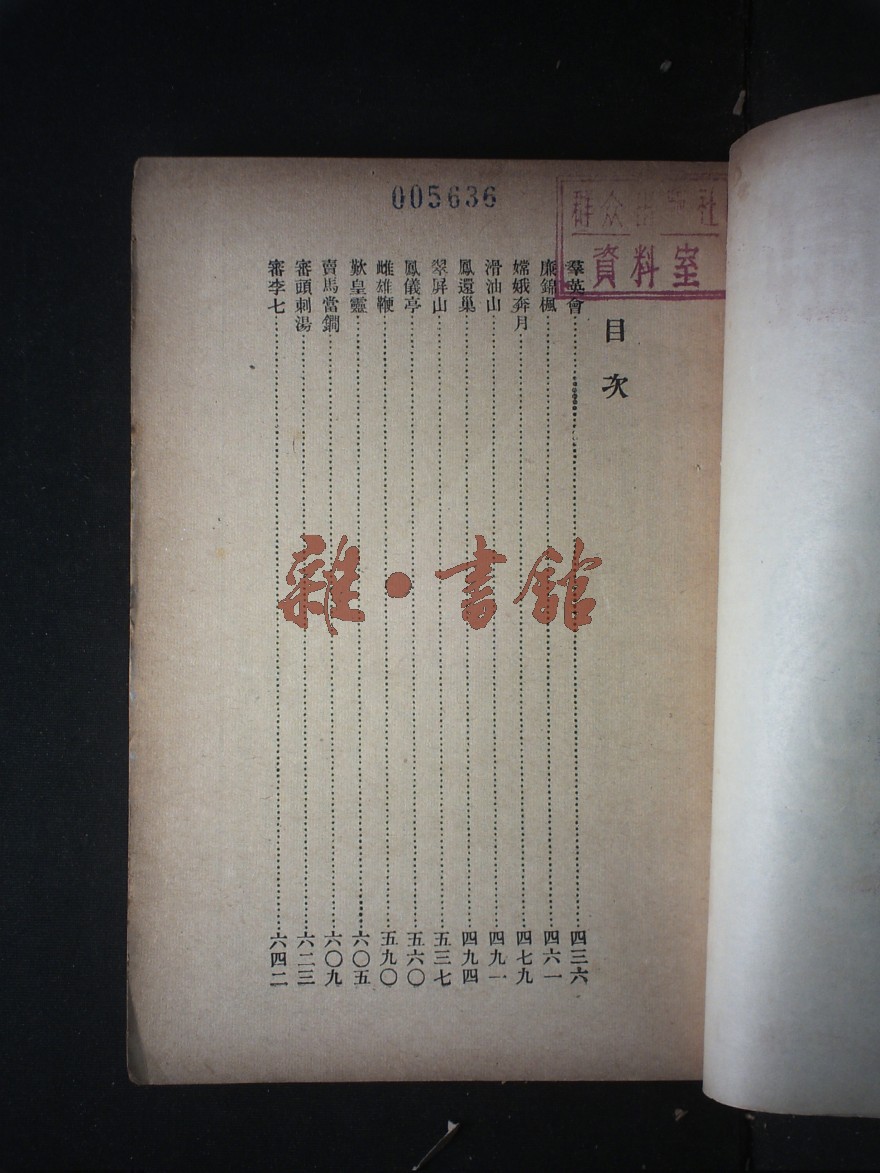 005636
群众出版社
資料室
目次
羣英會……四三六
廉錦楓……四六一
嫦娥奔月……四七九
滑油山……四九一
鳳還巢……四九四
翠屏山……五三七
鳳儀亭……五六〇
雌雄鞭……五九〇
歎皇靈……六〇五
賣馬當鐧……六〇九
審頭刺湯……六二三
審李七……六四二
雜·書館